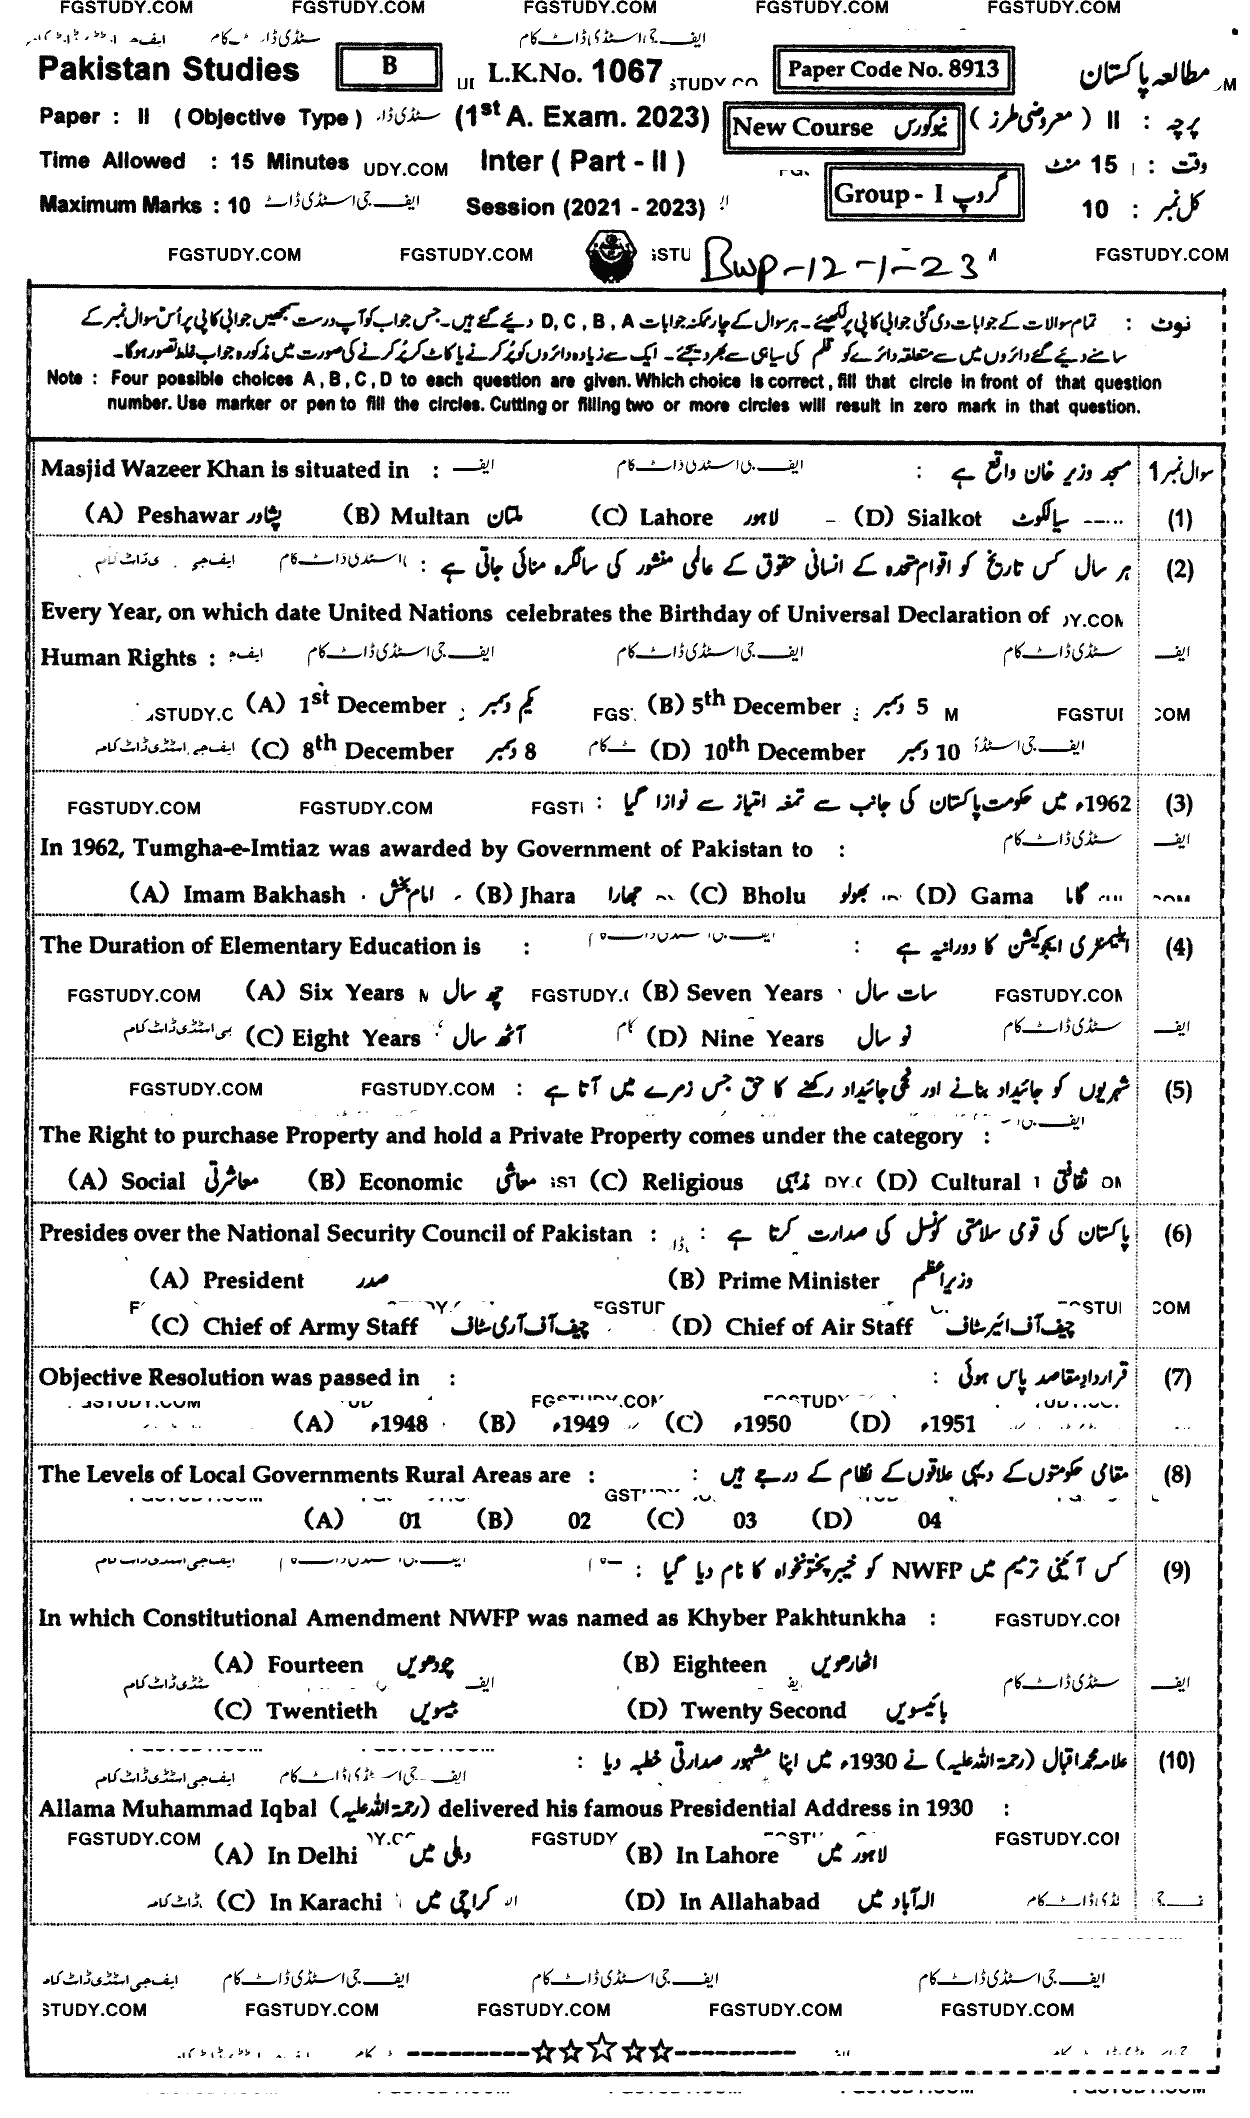 FGSTUDY.COM FGSTUDY.COM FGSTUDY.COM FGSTUDY.COM FGSTUDY.COM
Pakistan Studies B L.K.No. 1067 STUDY.CO Paper Code No. 8913 مطالعہ پاکستان
Paper : II ( Objective Type ) (1st A. Exam. 2023) New Course نیو کورس پرچہ : II ( معروضی طرز )
Time Allowed : 15 Minutes UDY.COM Inter ( Part - II ) وقت : 15 منٹ
Maximum Marks : 10 ایف جی اسٹڈی ڈاٹ Session (2021 - 2023) Group - I گروپ کل نمبر : 10
FGSTUDY.COM FGSTUDY.COM Bwp-12-1-23 FGSTUDY.COM
نوٹ : تمام سوالات کے جوابات دی گئی جوابی کاپی پر لکھیئے۔ ہر سوال کے چار ممکنہ جوابات D, C, B, A دیئے گئے ہیں۔ جس جواب کو آپ درست سمجھیں جوابی کاپی پر اُس سوال نمبر کے
سامنے دیئے گئے دائروں میں سے متعلقہ دائرے کو قلم کی سیاہی سے بھر دیجئے۔ ایک سے زیادہ دائروں کو پُر کرنے یا کاٹ کر پُر کرنے کی صورت میں مذکورہ جواب غلط تصور ہوگا۔
Note : Four possible choices A , B , C , D to each question are given. Which choice is correct , fill that circle in front of that question
number. Use marker or pen to fill the circles. Cutting or filling two or more circles will result in zero mark in that question.
Masjid Wazeer Khan is situated in : مسجد وزیر خان واقع ہے : سوال نمبر 1
(A) Peshawar پشاور (B) Multan ملتان (C) Lahore لاہور (D) Sialkot سیالکوٹ (1)
ہر سال کس تاریخ کو اقوام متحدہ کے انسانی حقوق کے عالمی منشور کی سالگرہ منائی جاتی ہے : (2)
Every Year, on which date United Nations celebrates the Birthday of Universal Declaration of
Human Rights : ایف جی اسٹڈی ڈاٹ کام ایف جی اسٹڈی ڈاٹ کام
(A) 1st December یکم دسمبر (B) 5th December 5 دسمبر
(C) 8th December 8 دسمبر (D) 10th December 10 دسمبر
FGSTUDY.COM FGSTUDY.COM 1962ء میں حکومت پاکستان کی جانب سے تمغہ امتیاز سے نوازا گیا : (3)
In 1962, Tumgha-e-Imtiaz was awarded by Government of Pakistan to :
(A) Imam Bakhash امام بخش (B) Jhara جھارا (C) Bholu بھولو (D) Gama گاما
The Duration of Elementary Education is : ایلیمنٹری ایجوکیشن کا دورانیہ ہے : (4)
FGSTUDY.COM (A) Six Years چھ سال (B) Seven Years سات سال FGSTUDY.COM
(C) Eight Years آٹھ سال (D) Nine Years نو سال
FGSTUDY.COM FGSTUDY.COM شہریوں کو جائیداد بنانے اور نجی جائیداد رکھنے کا حق جس زمرے میں آتا ہے : (5)
The Right to purchase Property and hold a Private Property comes under the category :
(A) Social معاشرتی (B) Economic معاشی (C) Religious مذہبی (D) Cultural ثقافتی
Presides over the National Security Council of Pakistan : پاکستان کی قومی سلامتی کونسل کی صدارت کرتا ہے : (6)
(A) President صدر (B) Prime Minister وزیراعظم
(C) Chief of Army Staff چیف آف آرمی سٹاف (D) Chief of Air Staff چیف آف ائیر سٹاف
Objective Resolution was passed in : قرارداد مقاصد پاس ہوئی : (7)
(A) 1948ء (B) 1949ء (C) 1950ء (D) 1951ء
The Levels of Local Governments Rural Areas are : مقامی حکومتوں کے دیہی علاقوں کے نظام کے درجے ہیں : (8)
(A) 01 (B) 02 (C) 03 (D) 04
کس آئینی ترمیم میں NWFP کو خیبر پختونخواہ کا نام دیا گیا : (9)
In which Constitutional Amendment NWFP was named as Khyber Pakhtunkha :
(A) Fourteen چودھویں (B) Eighteen اٹھارھویں
(C) Twentieth بیسویں (D) Twenty Second بائیسویں
علامہ محمد اقبال (رحمۃ اللہ علیہ) نے 1930ء میں اپنا مشہور صدارتی خطبہ دیا : (10)
Allama Muhammad Iqbal (رحمۃ اللہ علیہ) delivered his famous Presidential Address in 1930 :
FGSTUDY.COM (A) In Delhi دہلی میں FGSTUDY (B) In Lahore لاہور میں
(C) In Karachi کراچی میں (D) In Allahabad الہ آباد میں
ایف جی اسٹڈی ڈاٹ کام ایف جی اسٹڈی ڈاٹ کام ایف جی اسٹڈی ڈاٹ کام ایف جی اسٹڈی ڈاٹ کام
STUDY.COM FGSTUDY.COM FGSTUDY.COM FGSTUDY.COM FGSTUDY.COM